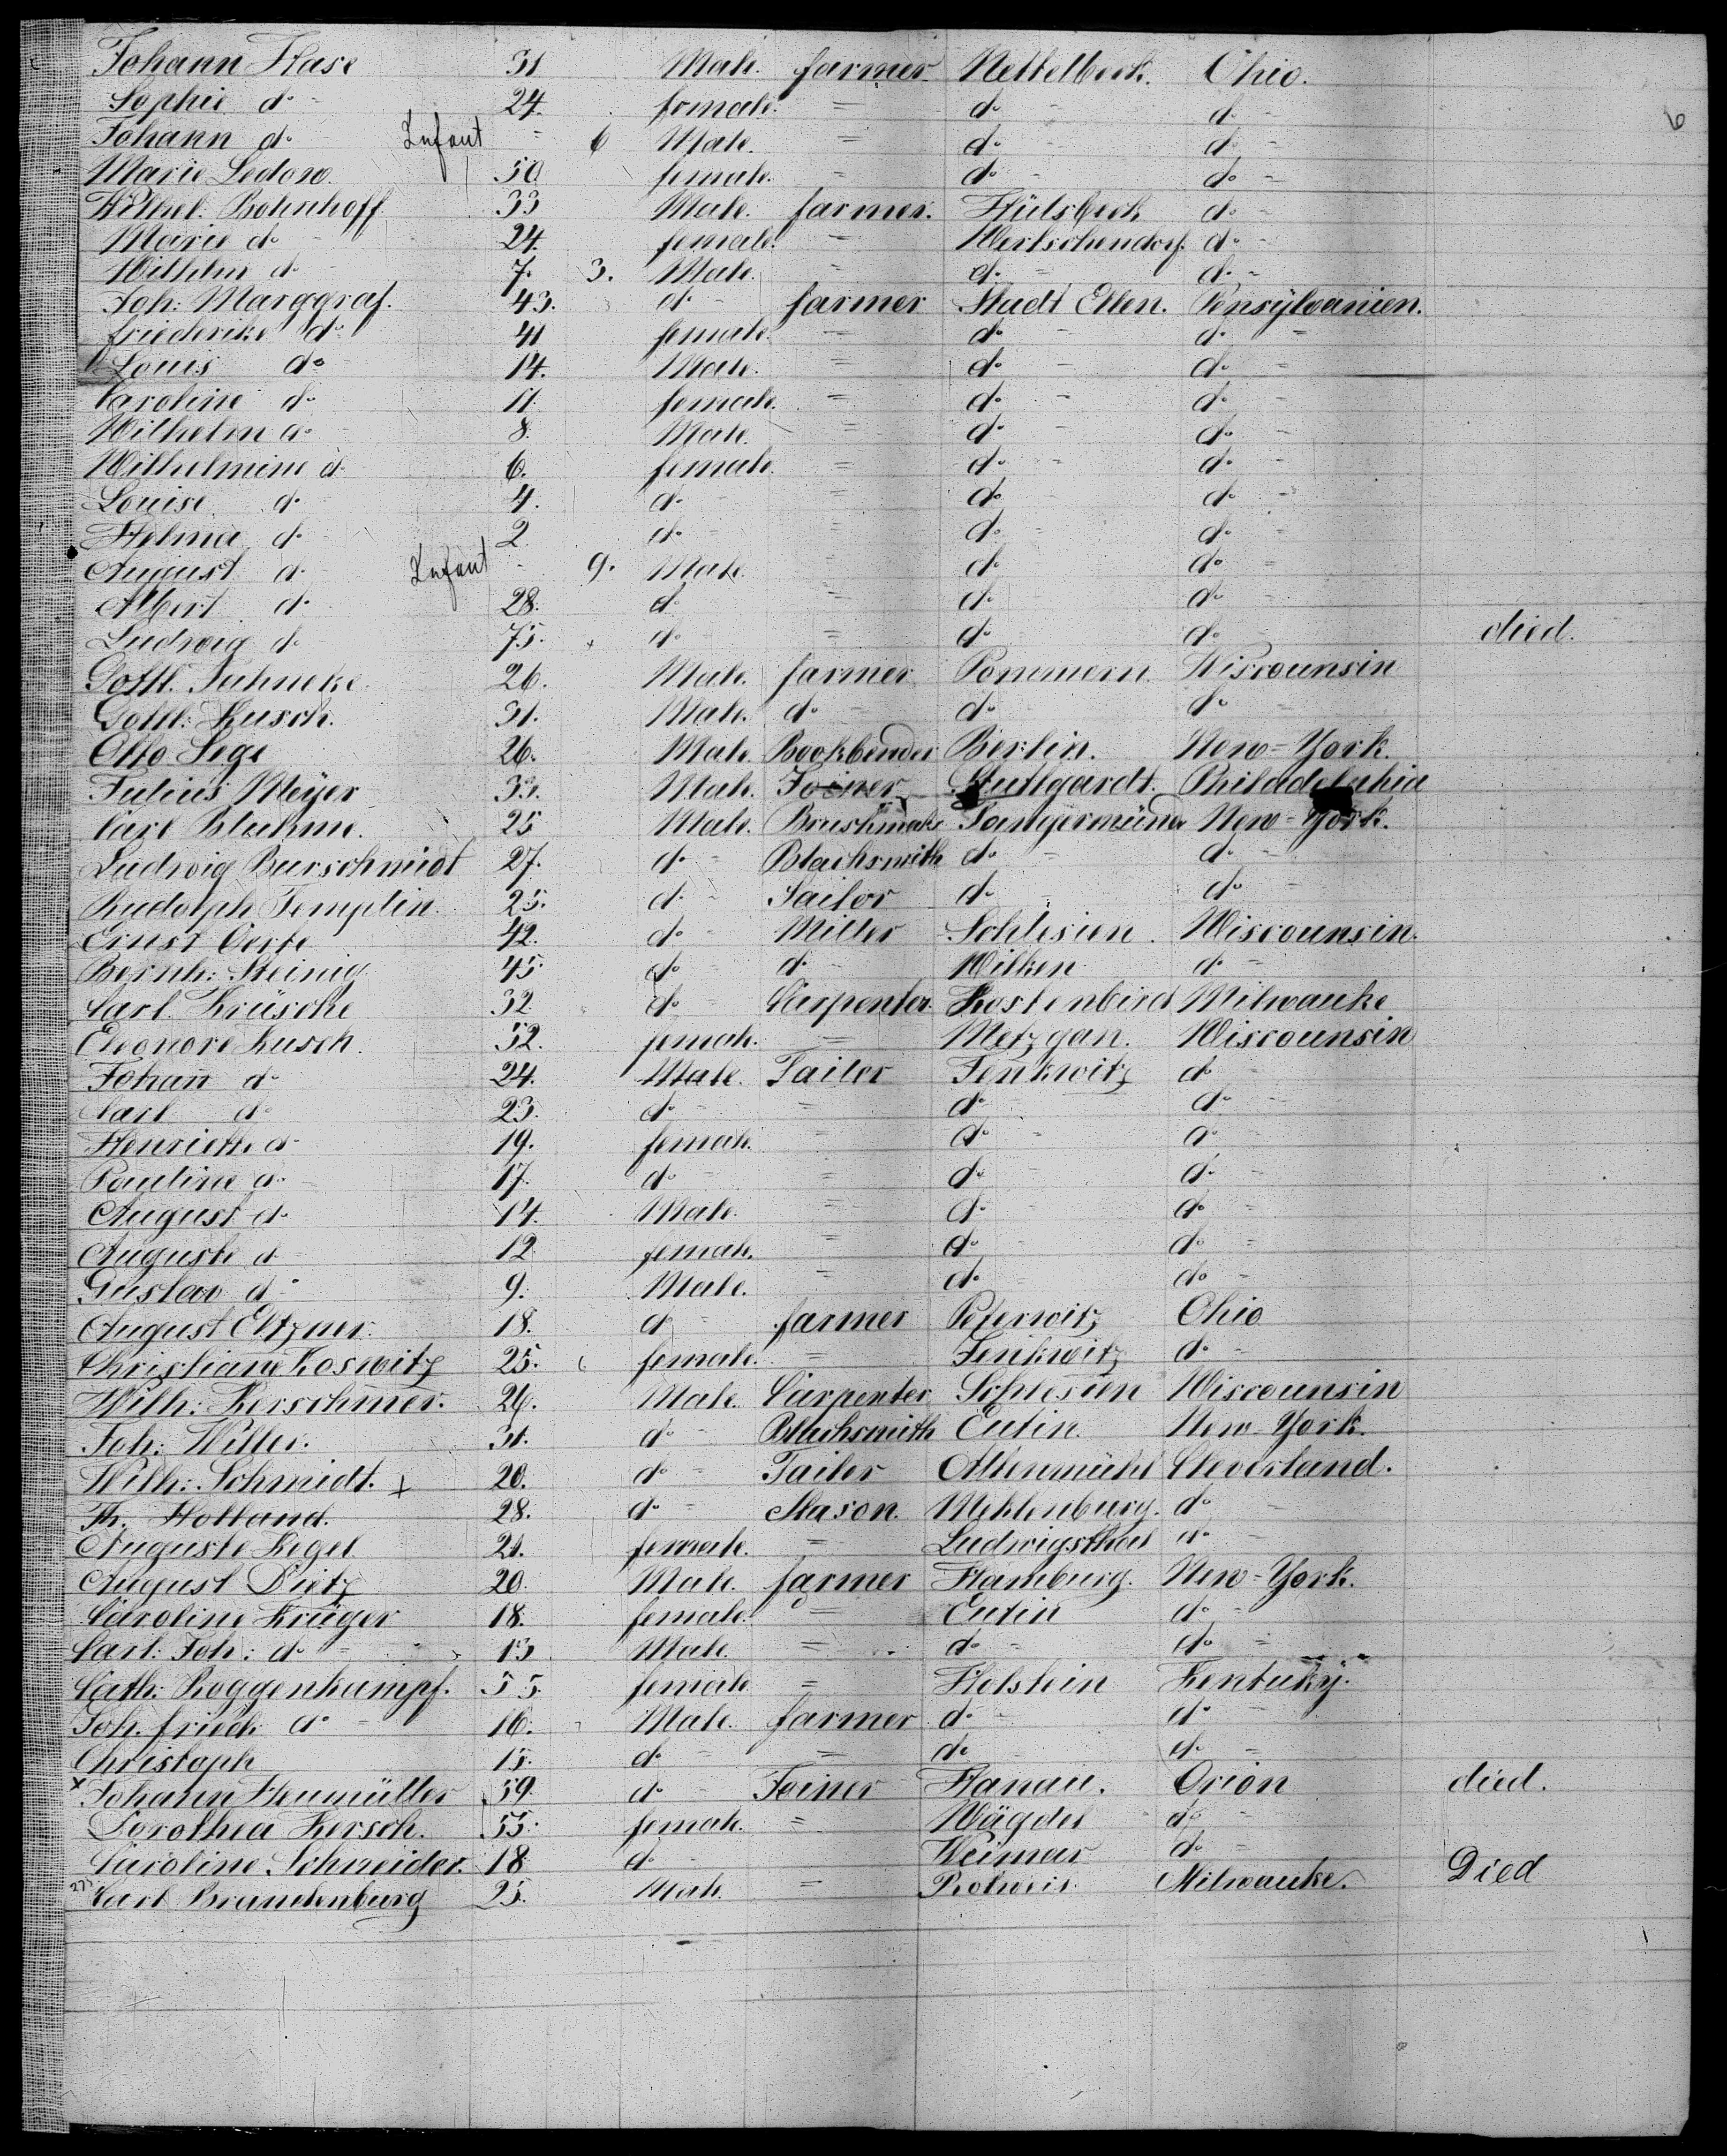 Johann Hase 31 Male. farmer Nettelbeck. Ohio.
6
Sophie do - 24. female. = do - do -
Johann do Infant - 6 Male. = do - do -
Marie Ledow. 50. female. = do - do -
Wilhel. Bohnhoff 33 Male. farmer. Hülsbeck do -
Marie do - 24. female. = Wertschendorf. do -
Wilhelm do - 7. 3. Male. = do - do -
Joh: Marggraf. 43. do - farmer Stadt Ellen. Pensylvanien.
friederike do 41 female. = do - do =
Louis do - 14. Male. = do - do =
Caroline do - 11. female. = do - do -
Wilhelm do - 8. Male. = do - do -
Wilhelmine do 6. female. = do - do -
Louise do - 4. do - = do - do -
Helma do - 2. do - = do - do -
August do - Infant - 9. Male. = do do =
Albert do - 28. do = do - do -
Ludwig do - 75. do - = do - do - died.
Gottl. Jahneke. 26. Male. farmer Pommern. Wiscounsin
Gottl: Kusch. 31. Male. do - do - do -
Otto Lege 26. Male. Bookbender Berlin. New=York.
Julius Meyer 33. Male. Joiner Stuttgardt. Philadelphia
Carl Bluhme. 25 Male. Brushmake Tangermünd New=York.
Ludwig Burschmidt 27. do - Blacksmith do = do -
Rudolph Templin. 25. do - Sailor do - do =
Ernst Oerte 42. do - Miller Schlesien. Wiscounsin.
Bernh: Steinig 45. do do - Wilken do =
Carl Krüscke 32 do = Carpenter. Kostenbird Milwauke
Eleonore Kusch. 52. female. = Metzgan. Wiscounsin
Johan̄ do - 24. Male. Tailor Jenkwitz do -
Carl do - 23. do - = do - do -
Henriette do - 19. female. = do - do -
Pauline do - 17. do - = do - do -
August do - 14. Male. = do - do -
Auguste do - 12 female. = do - do =
Gustav do - 9. Male. = do - do -
August Eltzner. 18. do - farmer Peterwitz Ohio
Christiane Koswitz 25. female. = Jenkwitz do -
Wilh: Kerschmer. 26. Male. Carpenter Schlesien Wiscounsin
Joh: Witter. 31. do - Blacksmith Eutin New-York.
Wilh: Schmidt. + 20. do = Tailor Altenmühl Cleverland.
Th. Holland. 28. do = Mason. Meklenburg. do =
Auguste Kegel 21. female. = Ludwigsthal do -
August Dietz 20. Male. farmer Hamburg. New=York.
Caroline Krüger 18. female. = Eutin do -
Carl: Joh: do = 13. Male. = do = do =
Cath: Roggenkampf. 55. female = Holstein Kentuky.
Joh. friedr do - 16. Male. farmer do - do -
Christoph 15. do = = do - do -
x Johann Heumüller 59. do - Joiner Hanau. Orion died.
Dorothea Kersch. 55. female. = Wägdel do -
Caroline Schneider. 18 do - Weimar do - Died
273 Carl Brandenburg 25. Male. = Milwauke.